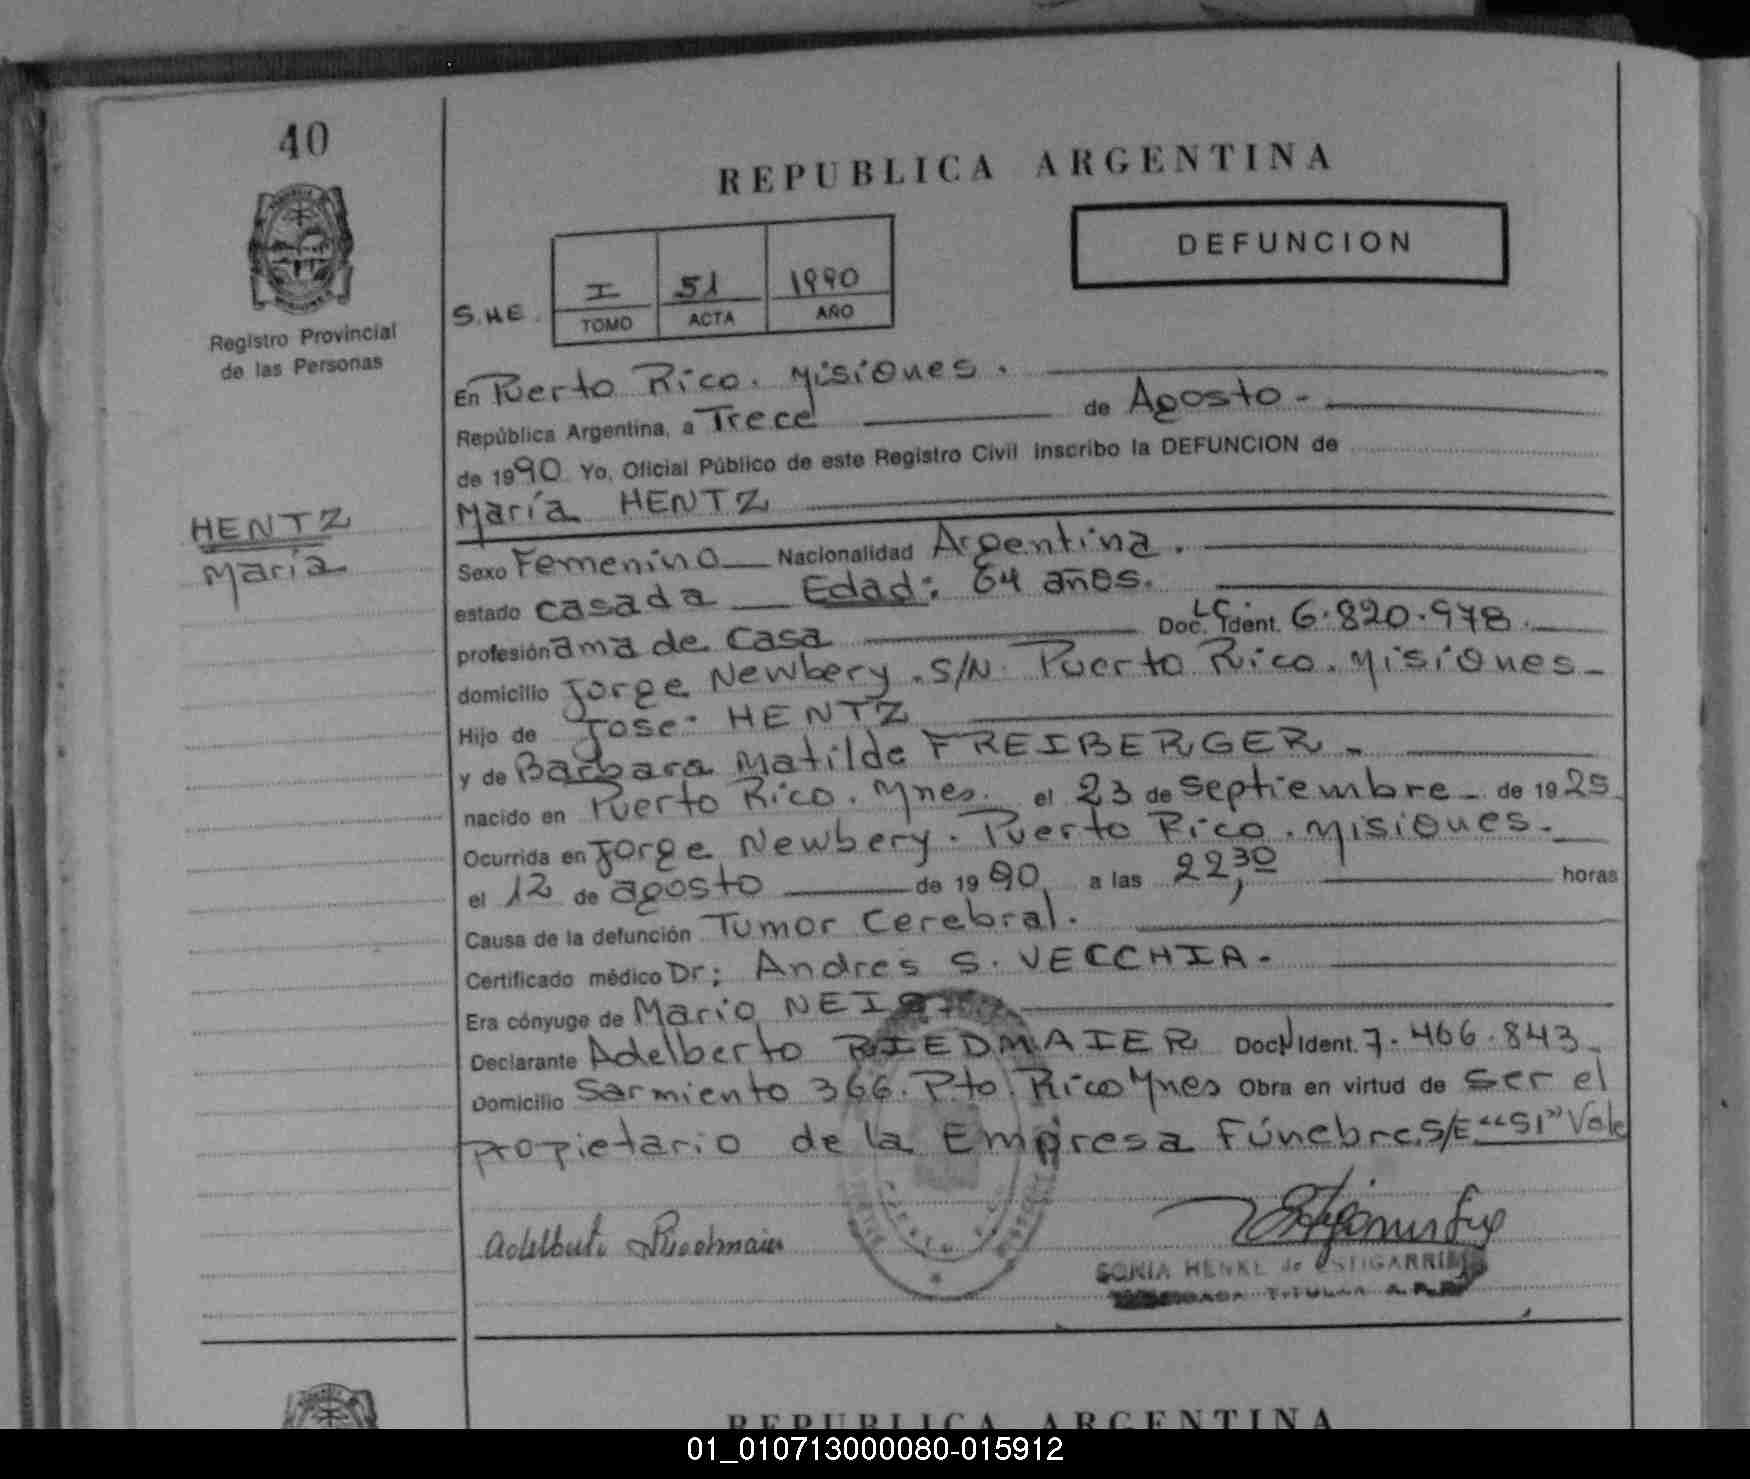 40
REPUBLICA ARGENTINA
DEFUNCION
Registro Provincial
de las Personas
S.HE.
I 51 1990
TOMO ACTA AÑO
En Puerto Rico. Misiones.
República Argentina, a Trece de Agosto -
de 1990 Yo, Oficial Público de este Registro Civil inscribo la DEFUNCION de
María HENTZ
HENTZ
María
Sexo Femenino Nacionalidad Argentina.
estado casada Edad: 64 años.
profesión ama de casa Doc. LC. Ident. 6.820.978.
domicilio Jorge Newbery. S/N. Puerto Rico. Misiones-
Hijo de José HENTZ
y de Barbara Matilde FREIBERGER.
nacido en Puerto Rico. Mnes. el 23 de septiembre - de 1925
Ocurrida en Jorge Newbery. Puerto Rico. Misiones.
el 12 de agosto de 1990, a las 22,30 horas
Causa de la defunción Tumor Cerebral.
Certificado médico Dr; Andrés S. VECCHIA-
Era cónyuge de Mario
Declarante Adelberto RIEDMAIER Doc Ident. 7.466.843
Domicilio Sarmiento 366. Pto. Rico Mnes Obra en virtud de ser el
propietario de la Empresa Fúnebre. S/E "SI" Vale
SONIA HENKE de ESTIGARRIBIA
TITULAR
REPUBLICA ARGENTINA
01_010713000080-015912